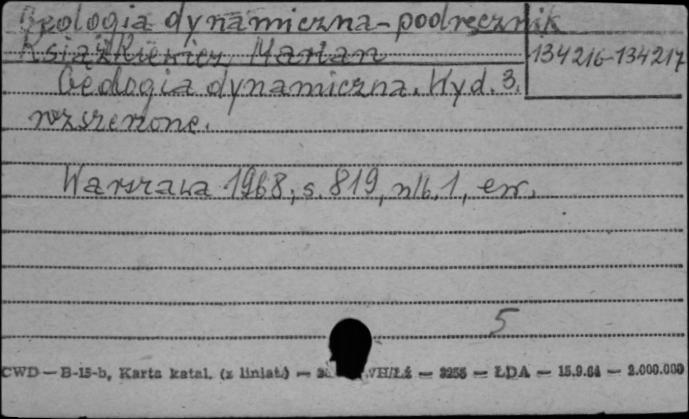 Geologia dynamiczna - podręcznik
Książkiewicz, Marian
134216-134217
Geologia dynamiczna. Wyd. 3.
rozszerzone.
Warszawa 1968, s. 819, nlb. 1, err.
5
CWD — B-15-b, Karta katal. (z liniat.) — VH/Łź — 3255 — ŁDA — 15.9.64 — 2.000.000